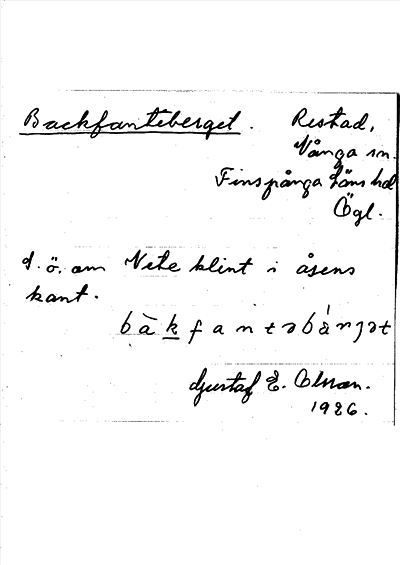 Backfanteberget. Restad,
Vånga sn.
Finspånga läns hd
Ögl.
S. ö. om Vete klint i åsens
kant.
bàkfantəbárjət
Gustaf E. Olsson.
1926.